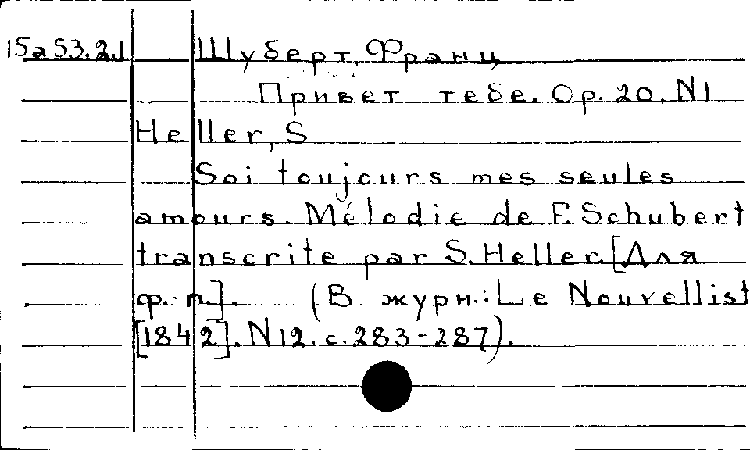 15а53.2.1 Шуберт, Франц
Привет тебе. Ор. 20. N1
Heller, S
Soi toujours mes seules
amours. Mélodie de F. Schubert
transcrite par S. Heller. [Для
ф.-п.]. (В журн.: Le Nouvellist
[1842]. N12. с. 283-287).